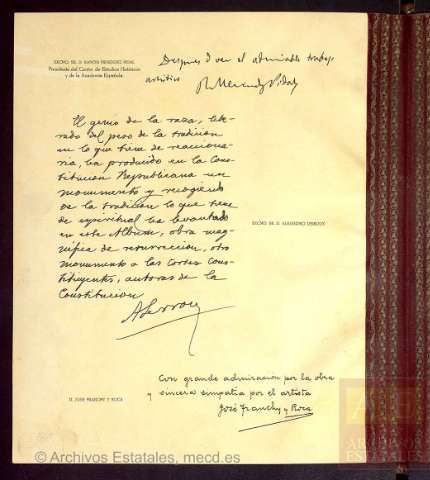 EXCMO. SR. D. RAMÓN MENÉNDEZ PIDAL
Presidente del Centro de Estudios Históricos
y de la Academia Española.
Despues de ver el admirable trabajo
artístico R Menendez Pidal
El genio de la raza, libe-
rado del peso de la tradicion
en lo que tiene de reacciona-
ria, ha producido en la Cons-
titucion Republicana un
monumento y recogiendo
de la tradicion lo que tiene
de espiritual ha levantado
en este Album, obra mag-
nifica de resurreccion, otro
monumento a las Cortes Cons-
tituyentes, autoras de la
Constitucion
ALerroux
EXCMO. SR. D. ALEJANDRO LERROUX
Con grande admiración por la obra
y sincera simpatía por el artista
José Franchy y Roca
D. JOSÉ FRANCHY Y ROCA
ARCHIVOS
ESTATALES
© Archivos Estatales, mecd.es